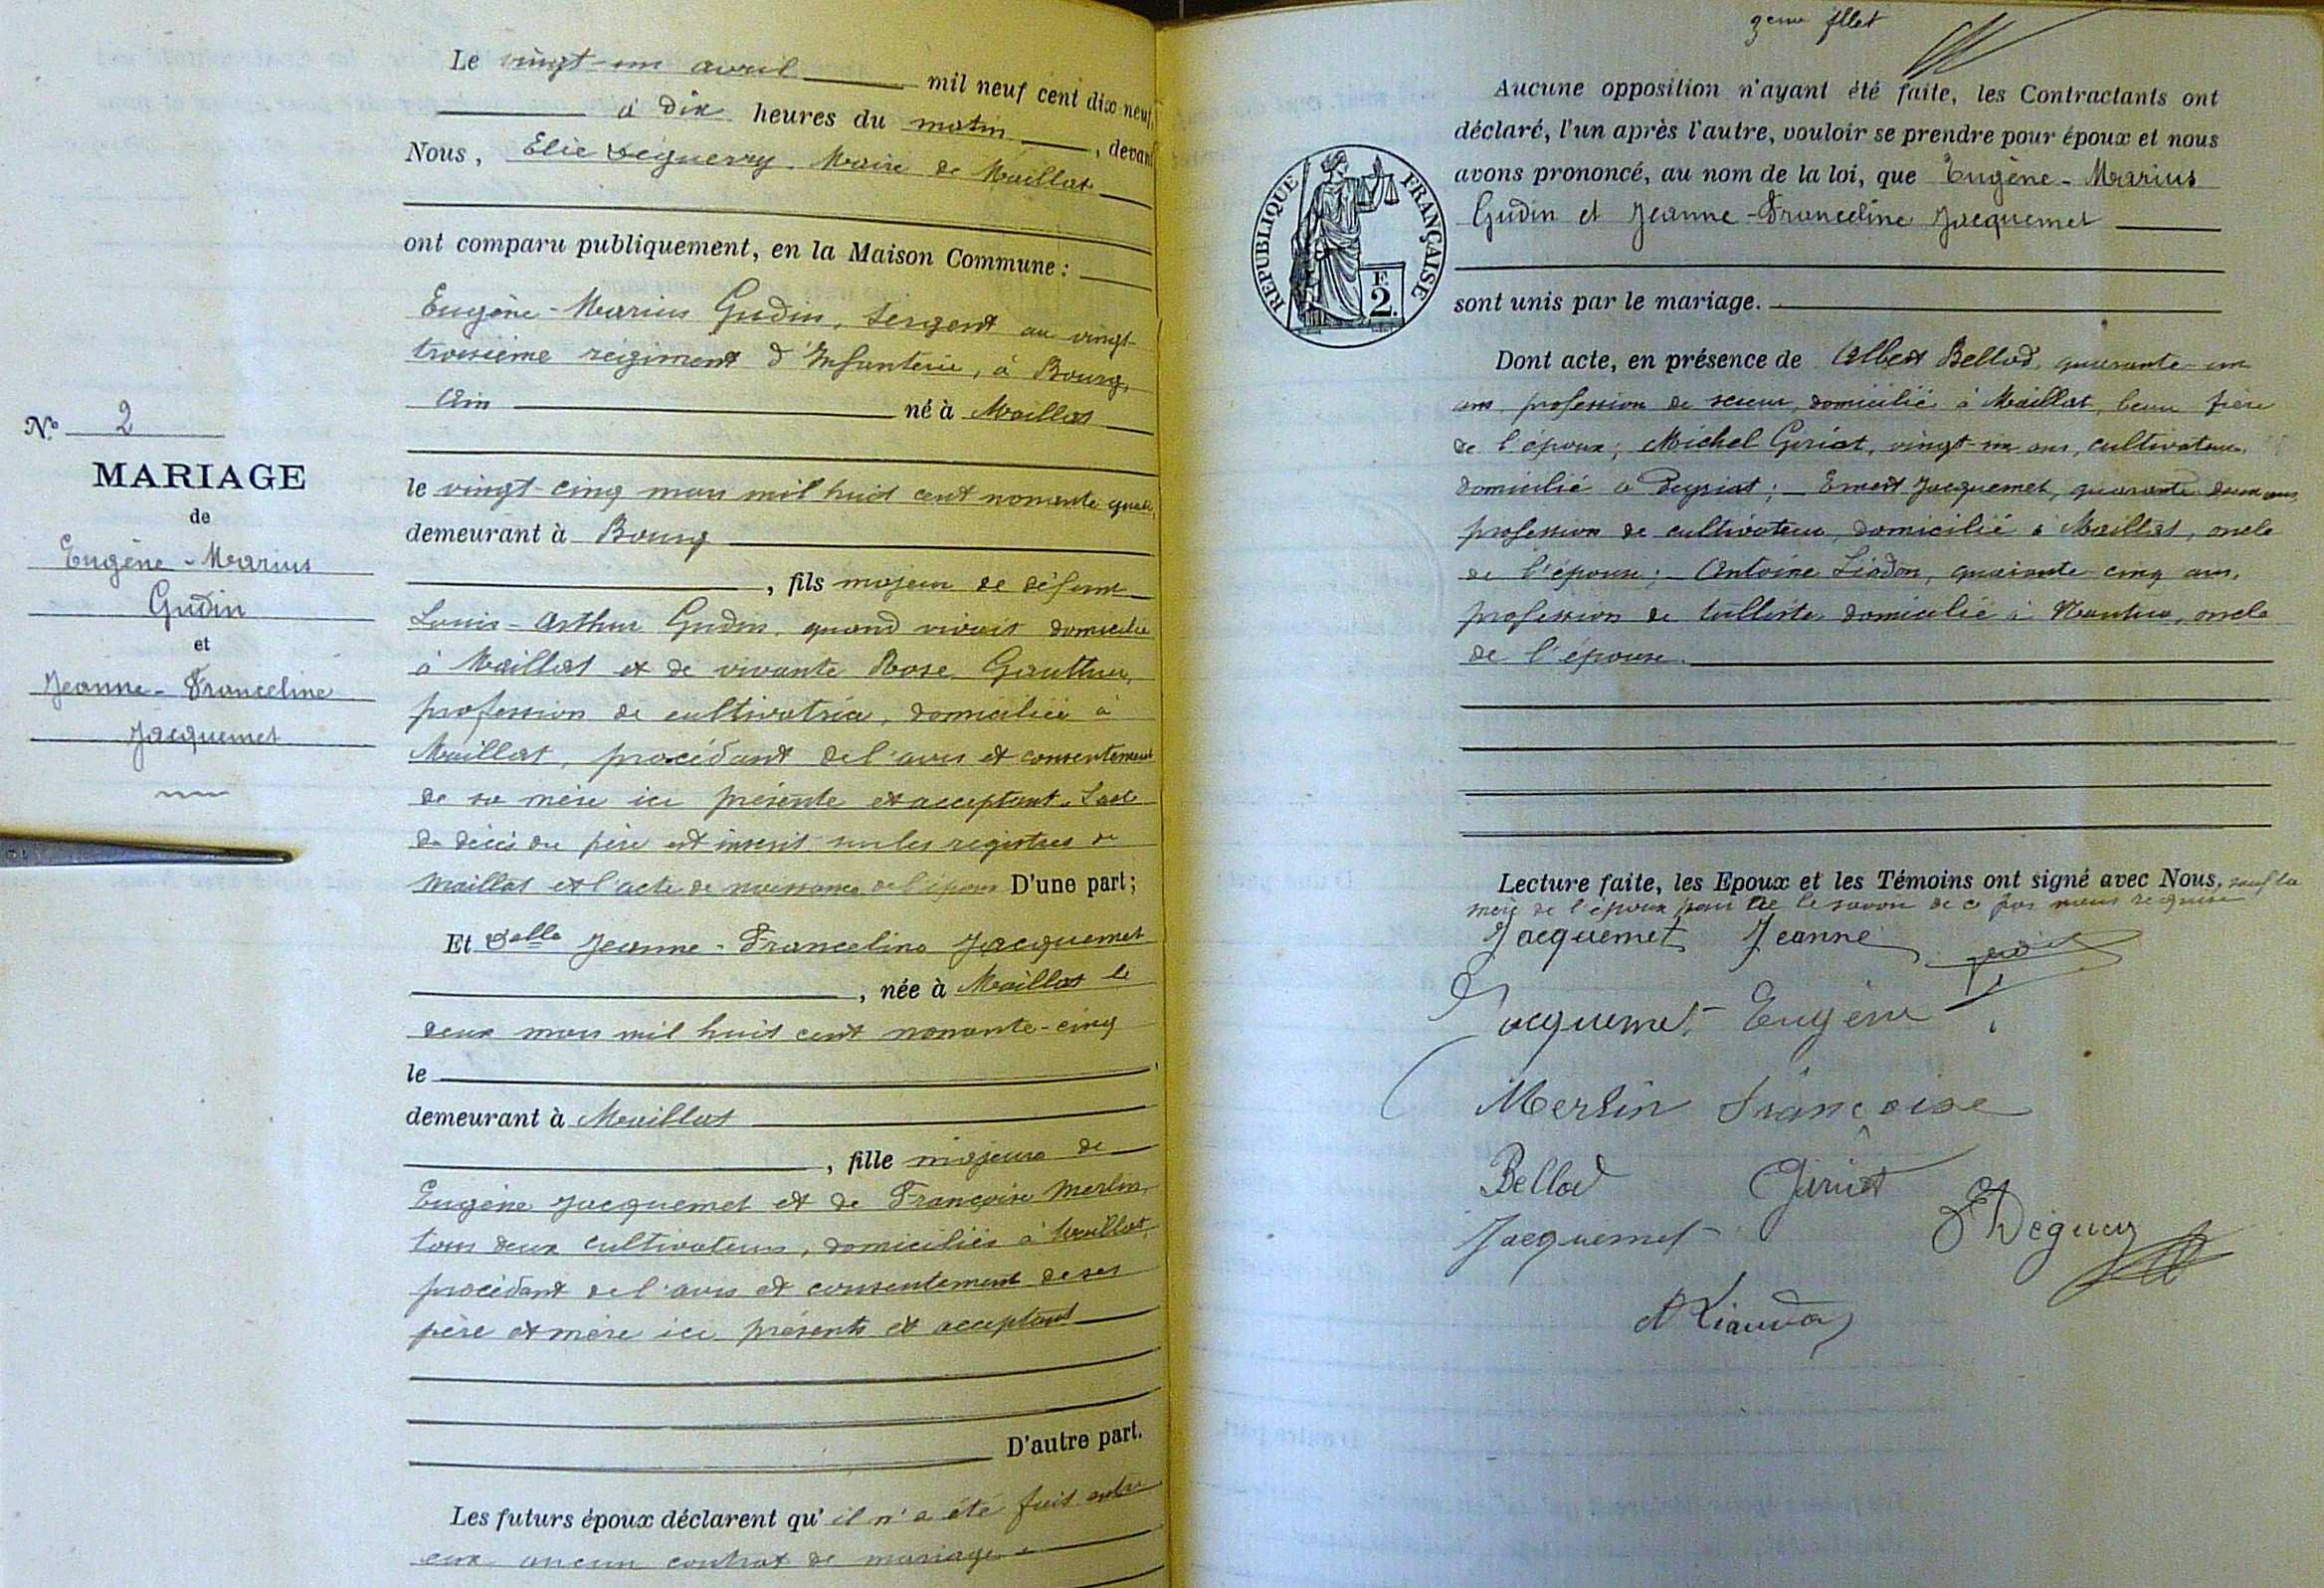 Le vingt-un avril mil neuf cent dix neuf,
à dix heures du matin, devant
Nous, Elie Déguerry Maire de Maillat
ont comparu publiquement, en la Maison Commune :
Eugène-Marius Gudin, Sergent au vingt
troisième régiment d'Infanterie, à Bourg,
Ain né à Maillat
le vingt-cinq mars mil huit cent nonante quatre,
demeurant à Bourg
, fils majeur de défunt
Louis-Arthur Gudin, quand vivait domicilié
à Maillat et de vivante Rose Gauthier,
profession de cultivatrice, domiciliée à
Maillat, procédant de l'avis et consentement
de sa mère ici présente et acceptant. L'acte
de décès du père est inscrit sur les registres de
Maillat et l'acte de naissance de l'époux D'une part;
Et Delle Jeanne-Franceline Jacquemet
, née à Maillat le
deux mars mil huit cent nonante-cinq
le
demeurant à Maillat
, fille majeure de
Eugène Jacquemet et de Françoise Merlin,
tous deux cultivateurs, domiciliés à Maillat,
procédant de l'avis et consentement de ses
père et mère ici présents et acceptant
D'autre part.
Les futurs époux déclarent qu'il n'a été fait entre
eux aucun contrat de mariage
N° 2
MARIAGE
de
Eugène-Marius
Gudin
et
Jeanne-Franceline
Jacquemet
fllet
Aucune opposition n'ayant été faite, les Contractants ont
déclaré, l'un après l'autre, vouloir se prendre pour époux et nous
avons prononcé, au nom de la loi, que Eugène-Marius
Gudin et Jeanne-Franceline Jacquemet
sont unis par le mariage.
REPUBLIQUE FRANÇAISE
F
2.
Dont acte, en présence de Albert Bellod, quarante-un
ans, profession de scieur, domicilié à Maillat, beau frère
de l'époux; Michel Giriat, vingt-un ans, cultivateur,
domicilié à Peyriat; Ernest Jacquemet, quarante deux ans,
profession de cultivateur, domicilié à Maillat, oncle
de l'épouse; Antoine Liodon, quarante cinq ans,
profession de tulliste, domicilié à Nantua, oncle
de l'épouse.
Lecture faite, les Epoux et les Témoins ont signé avec Nous, sauf la
mère de l'époux pour ne le savoir de ce par nous requise
Jacquemet Jeanne
Jacquemet Eugène
Merlin Françoise
Bellod Giriat
Jacquemet E Déguerry
A Liaudon